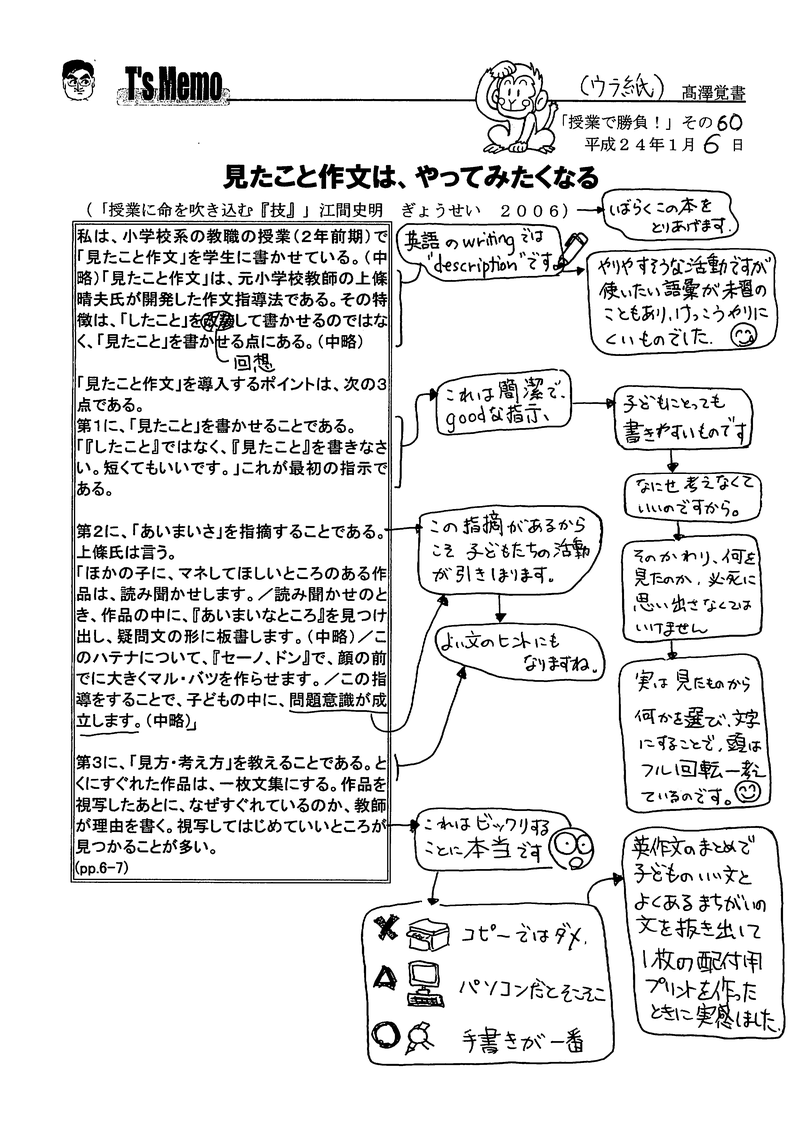 T's Memo
（ウラ紙）
髙澤覚書
「授業で勝負！」その60
平成２４年１月６日
見たこと作文は、やってみたくなる
（「授業に命を吹き込む『技』」江間史明　ぎょうせい　２００６）
私は、小学校系の教職の授業（２年前期）で
「見たこと作文」を学生に書かせている。（中
略）「見たこと作文」は、元小学校教師の上條
晴夫氏が開発した作文指導法である。その特
徴は、「したこと」を
して書かせるのではな
く、「見たこと」を書かせる点にある。（中略）
回想
「見たこと作文」を導入するポイントは、次の３
点である。
第１に、「見たこと」を書かせることである。
「『したこと』ではなく、『見たこと』を書きなさ
い。短くてもいいです。」これが最初の指示で
ある。
第２に、「あいまいさ」を指摘することである。
上條氏は言う。
「ほかの子に、マネしてほしいところのある作
品は、読み聞かせします。／読み聞かせのと
き、作品の中に、『あいまいなところ』を見つけ
出し、疑問文の形に板書します。（中略）／こ
のハテナについて、『セーノ、ドン』で、顔の前
でに大きくマル・バツを作らせます。／この指
導をすることで、子どもの中に、問題意識が成
立します。（中略）」
第３に、「見方・考え方」を教えることである。と
くにすぐれた作品は、一枚文集にする。作品を
視写したあとに、なぜすぐれているのか、教師
が理由を書く。視写してはじめていいところが
見つかることが多い。
(pp.6-7)
しばらくこの本を
とりあげます.
英語のwritingでは
"description"です
やりやすそうな活動ですが
使いたい語彙が未習の
こともあり、けっこうやりに
くいものでした.
これは簡潔で、
goodな指示、
子どもにとっても
書きやすいものです
なにせ考えなくて
いいのですから。
そのかわり、何を
見たのか、必死に
思い出さなくては
いけません
実は見たものから
何かを選び、文字
にすることで、頭は
フル回転ー考え
ているのです。
この指摘があるから
こそ子どもたちの活動
が引きしまります。
よい文のヒントにも
なりますね。
これはビックリする
ことに本当です
コピーではダメ.
パソコンだとそこそこ
手書きが一番
英作文のまとめで
子どものいい文と
よくあるまちがいの
文を抜き出して
1枚の配付用
プリントを作った
ときに実感しました.